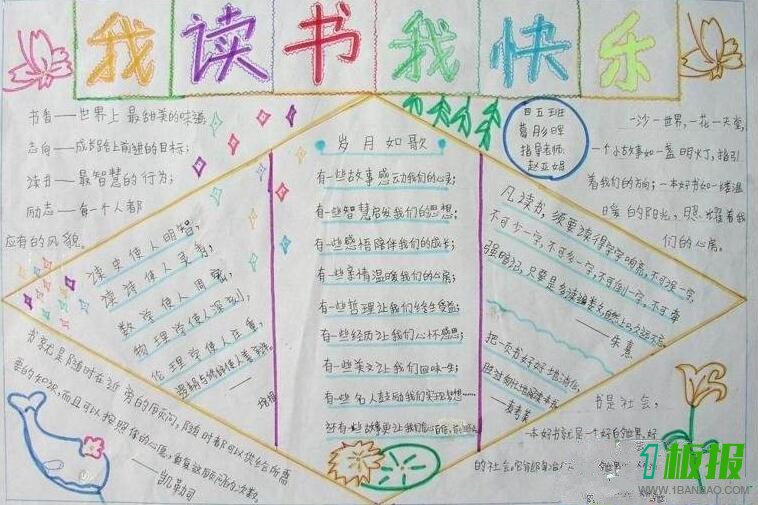 我读书我快乐
书香——世界上最甜美的味道
志向——成长路上前进的目标;
读书——最智慧的行为;
励志——每一个人都
应有的风貌。
读史使人明智,
读诗使人灵秀,
数学使人周密,
物理学使人深刻,
伦理学使人庄重,
逻辑与修辞使人善辩。
——培根
书就是随时在近旁的顾问,随时都可以供给你所需
要的知识,而且可以按照你的心愿,重复这顾问的次数。
——凯勒司
岁月如歌
有一些故事感动我们的心灵;
有一些智慧启发我们的思想;
有一些感悟陪伴我们的成长;
有一些亲情温暖我们的心房;
有一些哲理让我们终生受益;
有一些经历让我们心怀感恩;
有一些美文让我们回味一生;
有一些名人鼓励我们实现梦想……
还有一些故事更让我们
四五班
葛彤晖
指导老师:
赵亚娟
一沙一世界,一花一天堂,
一个小故事如一盏明灯,指引
着我们的方向;一本好书如一缕温
暖的阳光,照耀着我
们的心房。
凡读书,须要读得字字响亮,不可误一字,
不可少一字,不可多一字,不可倒一字,不可牵
强暗记,只要是多诵遍数,自然上口,久远不忘。
——朱熹
把一页书好好地消化,
胜过匆忙地阅读一本书。
——麦考莱
书是社会,
一本好书就是一个好的世界,好
的社会。它能
1板报
WWW.1BANBAO.COM